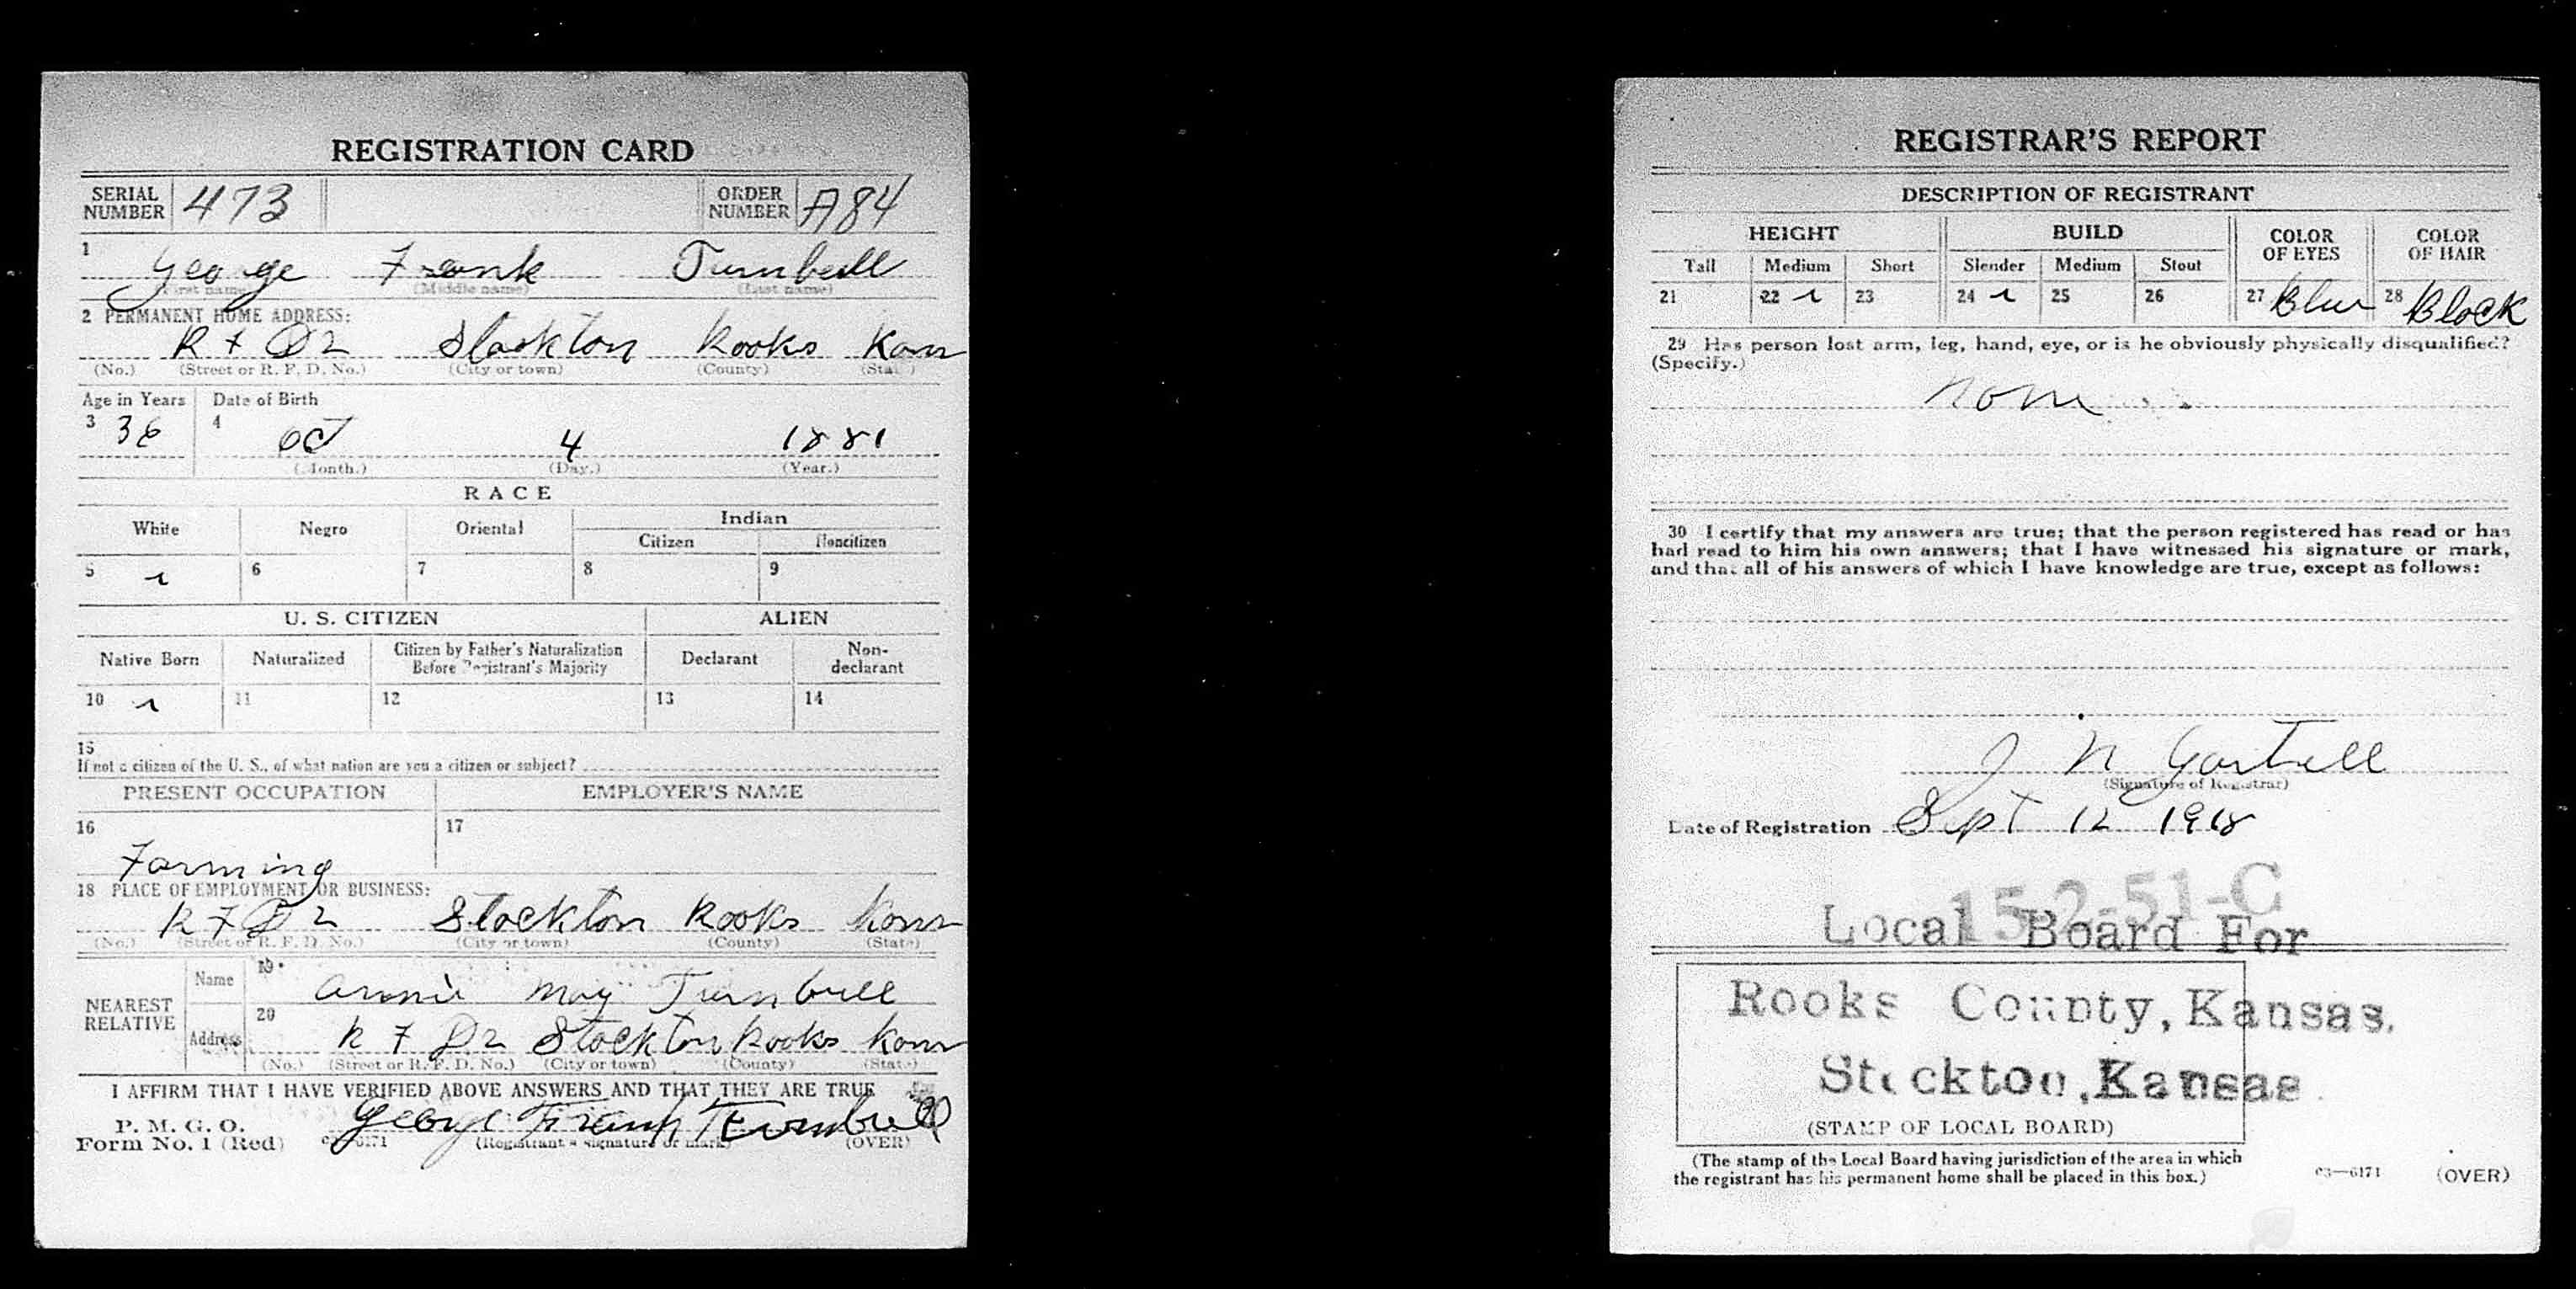 REGISTRATION CARD
SERIAL NUMBER 473 ORDER NUMBER A84
1 George Frank Turnbull
(First name) (Middle name) (Last name)
2 PERMANENT HOME ADDRESS:
R F D 2 Stockton Rooks Kans
(No.) (Street or R. F. D. No.) (City or town) (County) (State)
Age in Years Date of Birth
3 36 4 Oct 4 1881
(Month.) (Day.) (Year.)
RACE
White Negro Oriental Indian
Citizen Noncitizen
5 6 7 8 9
U. S. CITIZEN ALIEN
Native Born Naturalized Citizen by Father's Naturalization Before Registrant's Majority Declarant Non-declarant
10 11 12 13 14
15
If not a citizen of the U. S., of what nation are you a citizen or subject?
PRESENT OCCUPATION EMPLOYER'S NAME
16 17
Farming
18 PLACE OF EMPLOYMENT OR BUSINESS:
R F D 2 Stockton Rooks Kans
(No.) (Street or R. F. D. No.) (City or town) (County) (State)
NEAREST RELATIVE
Name 19 Annie May Turnbull
Address 20 R F D 2 Stockton Rooks Kans
(No.) (Street or R. F. D. No.) (City or town) (County) (State)
I AFFIRM THAT I HAVE VERIFIED ABOVE ANSWERS AND THAT THEY ARE TRUE
P. M. G. O.
Form No. 1 (Red) George Frank Turnbull
(Registrant's signature or mark) (OVER)
REGISTRAR'S REPORT
DESCRIPTION OF REGISTRANT
HEIGHT BUILD COLOR OF EYES COLOR OF HAIR
Tall Medium Short Slender Medium Stout
21 22 23 24 25 26 27 Blue 28 Black
29 Has person lost arm, leg, hand, eye, or is he obviously physically disqualified?
(Specify.)
None
30 I certify that my answers are true; that the person registered has read or has
had read to him his own answers; that I have witnessed his signature or mark,
and that all of his answers of which I have knowledge are true, except as follows:
J N
(Signature of Registrar)
Date of Registration Sept 12 1918
15-2-51-C
Local Board For
Rooks County, Kansas.
Stockton, Kansas.
(STAMP OF LOCAL BOARD)
(The stamp of the Local Board having jurisdiction of the area in which
the registrant has his permanent home shall be placed in this box.)
03—6171 (OVER)